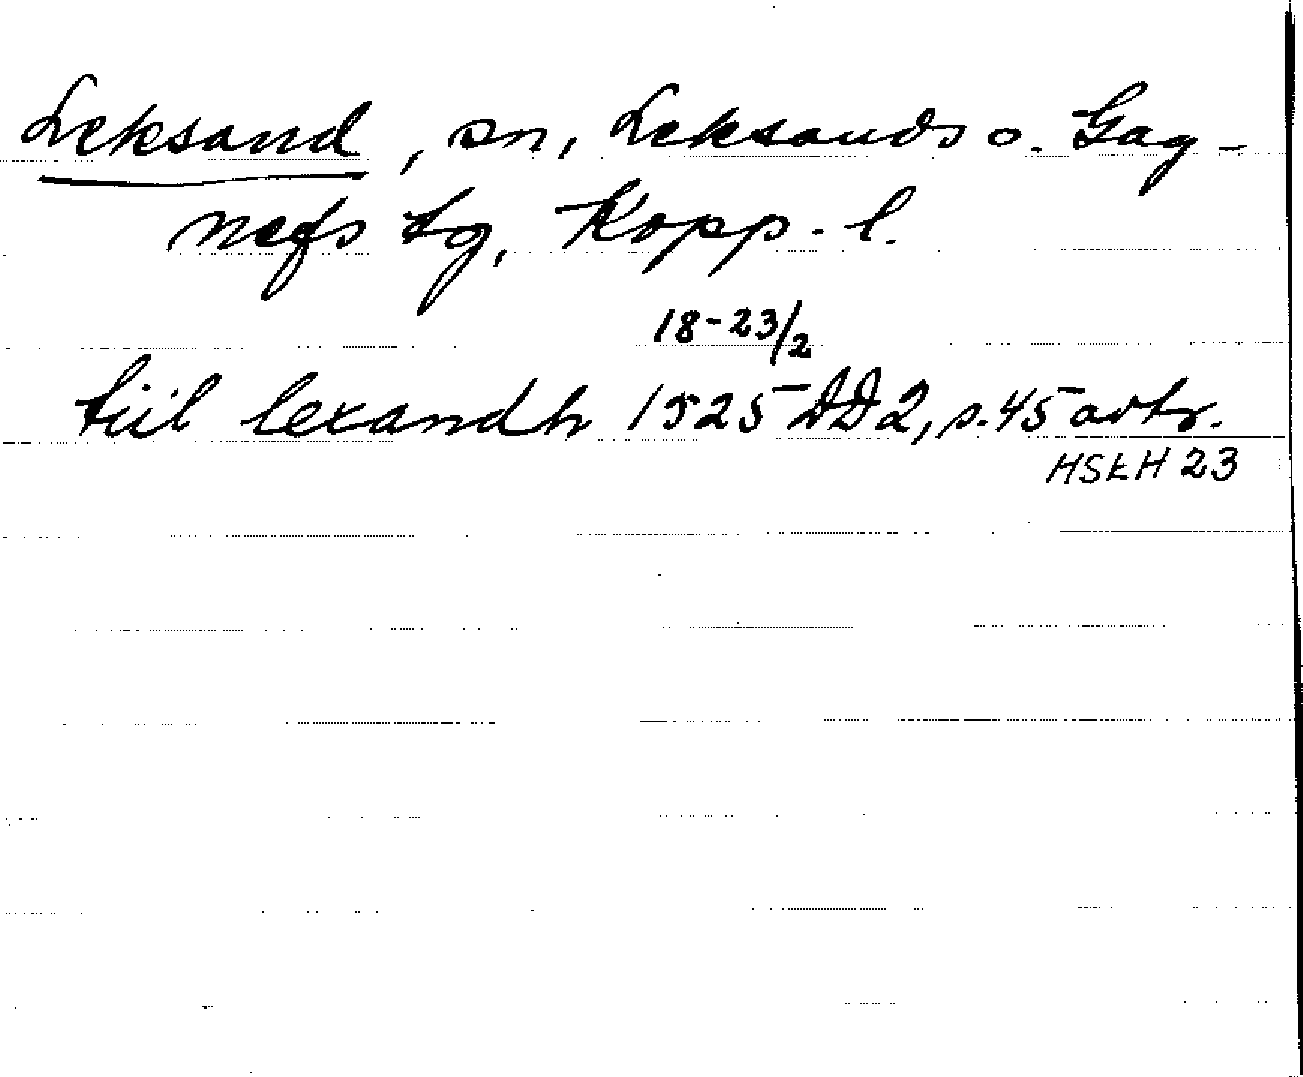 Leksand, sn, Leksands o. Gag-
nefs tg, Kopp. l.
18-23/2
tiil lexandh 1525 DD2, s. 45 avtr.
HSLH 23